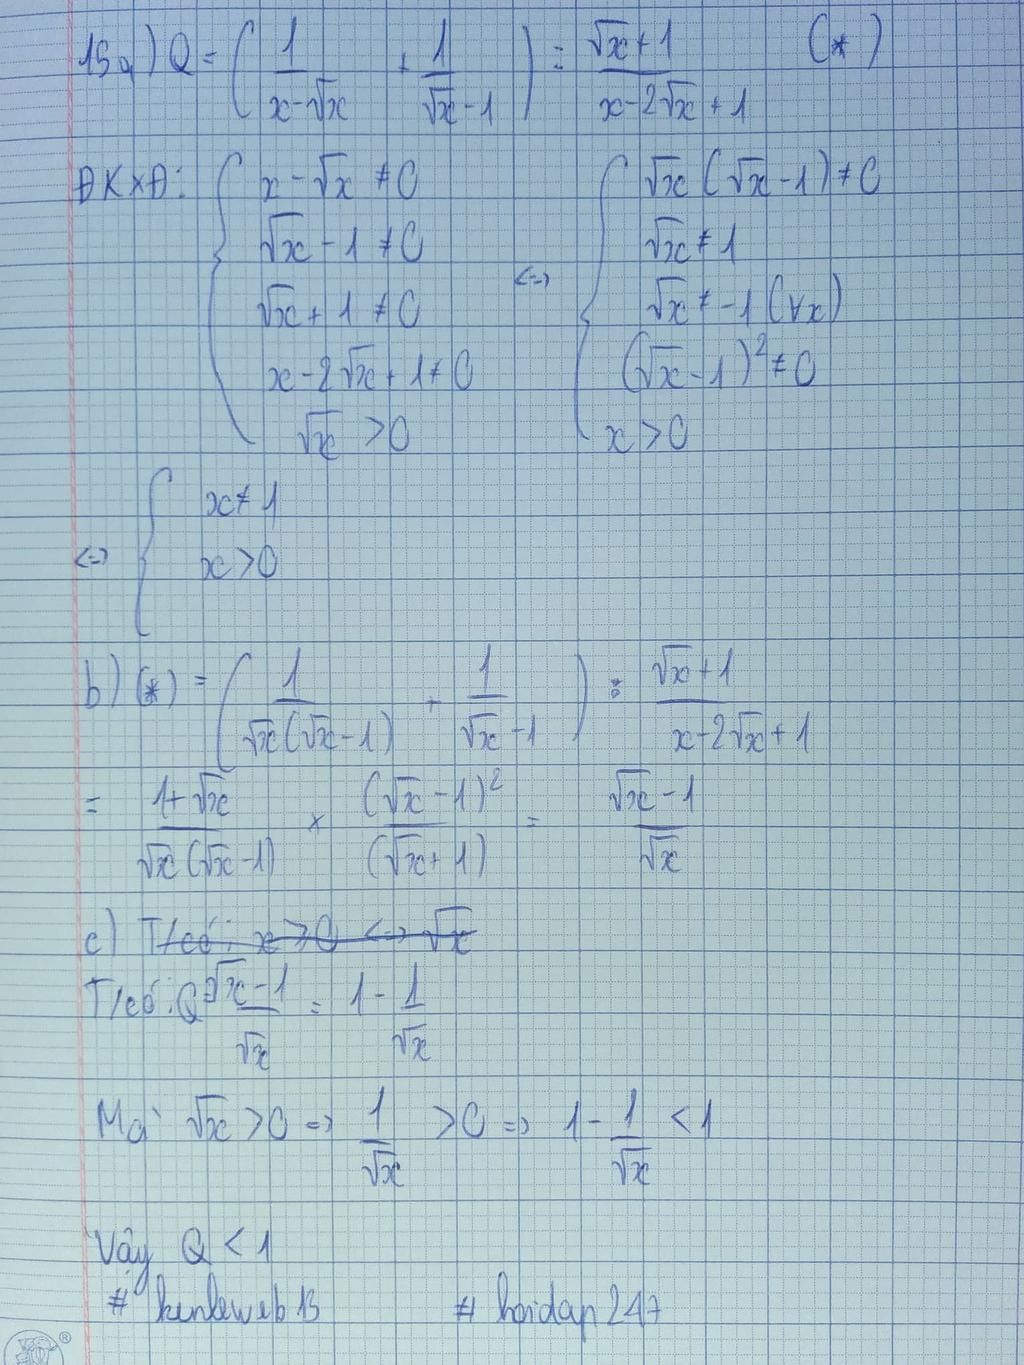 15a) Q = ( 1/(x-√x) + 1/(√x-1) ) : (√x+1)/(x-2√x+1) (*)
ĐKXĐ: { x-√x ≠ 0 { √x(√x-1) ≠ 0
√x-1 ≠ 0 √x ≠ 1
<=>
√x+1 ≠ 0 √x ≠ -1 (∀x)
x-2√x+1 ≠ 0 (√x-1)² ≠ 0
√x > 0 x > 0
<=> { x ≠ 1
x > 0
b) (*) = ( 1/(√x(√x-1)) + 1/(√x-1) ) : (√x+1)/(x-2√x+1)
= (1+√x)/(√x(√x-1)) × (√x-1)²/(√x+1) = (√x-1)/√x
c) T/có: x > 0 <=> √x
T/có: Q = (√x-1)/√x = 1 - 1/√x
Mà √x > 0 => 1/√x > 0 => 1 - 1/√x < 1
Vậy Q < 1
# kenleweb13 # hoidap247